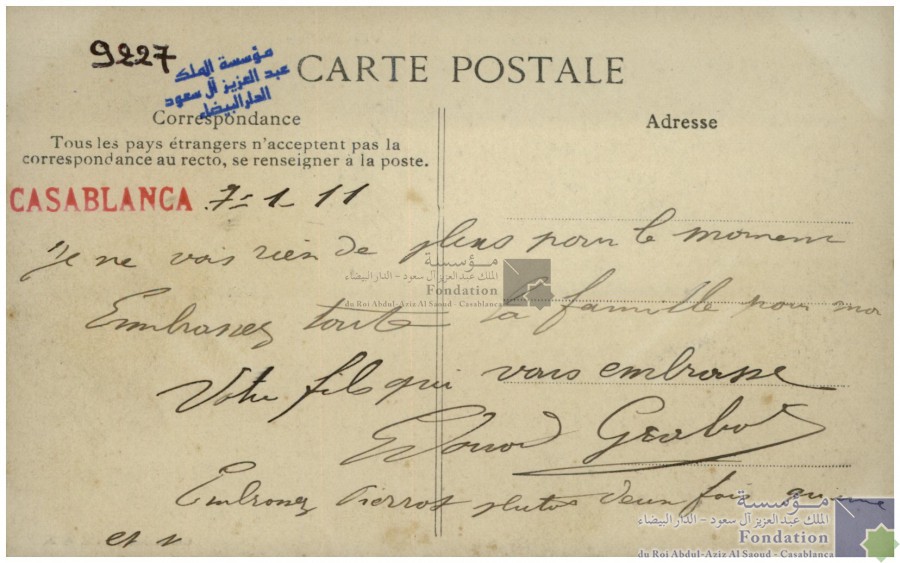 9227
مؤسسة الملك
عبد العزيز آل سعود
الدار البيضاء
CARTE POSTALE
Correspondance
Adresse
Tous les pays étrangers n'acceptent pas la
correspondance au recto, se renseigner à la poste.
CASABLANCA 7-1-11
Je ne vois rien de plus pour le moment
مؤسسة
الملك عبد العزيز آل سعود - الدار البيضاء
Fondation
du Roi Abdul-Aziz Al Saoud - Casablanca
Embrassez toute la famille pour moi
Votre fils qui vous embrasse
Edouard
Embrassez Pierrot plutos deux fois qu'une
et
مؤسسة
الملك عبد العزيز آل سعود - الدار البيضاء
Fondation
du Roi Abdul-Aziz Al Saoud - Casablanca